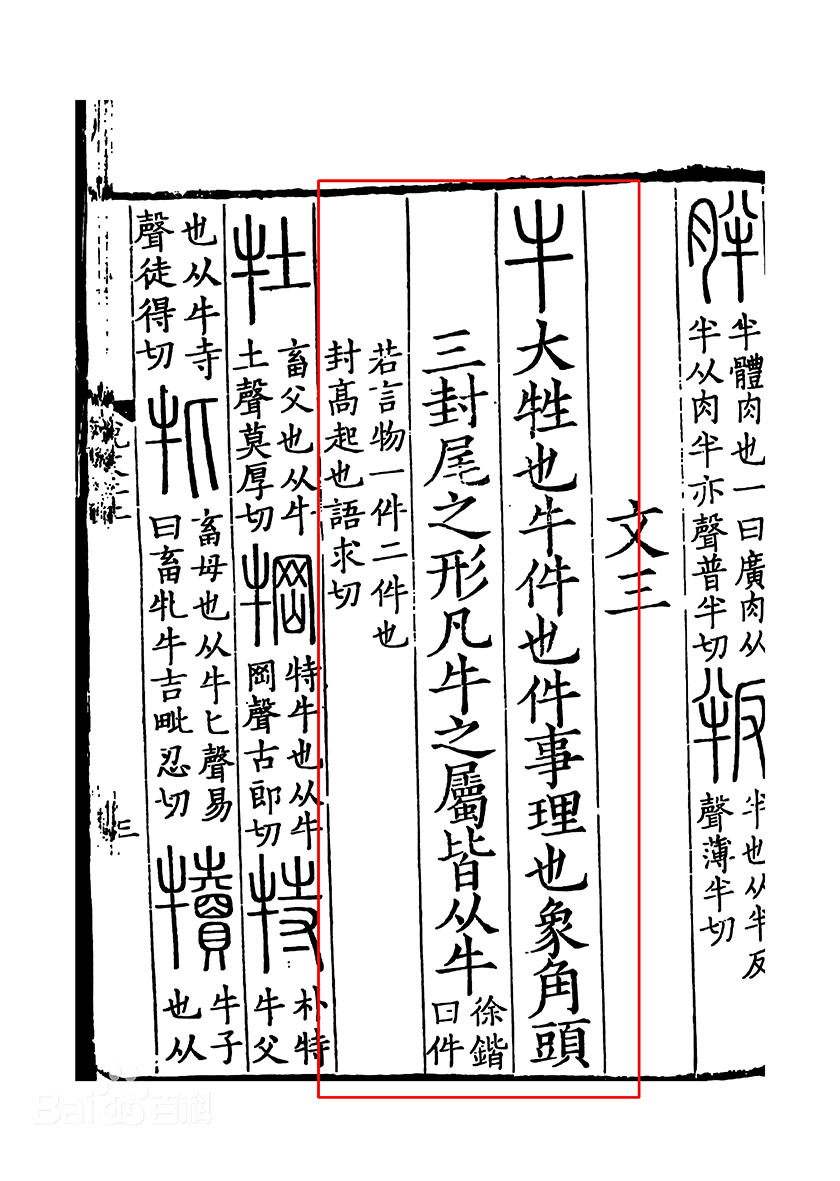 胖半體肉也一曰廣肉从半从肉半亦聲普半切叛半也从半反聲薄半切
文三
牛大牲也牛件也件事理也象角頭
三封尾之形凡牛之屬皆从牛徐鍇曰件
若言物一件二件也封髙起也語求切
牡畜父也从牛土聲莫厚切犅特牛也从牛岡聲古郎切特朴特牛父
也从牛寺聲徒得切牝畜母也从牛匕聲易曰畜牝牛吉毗忍切犢牛子也从
說文二上
三
Bai百科